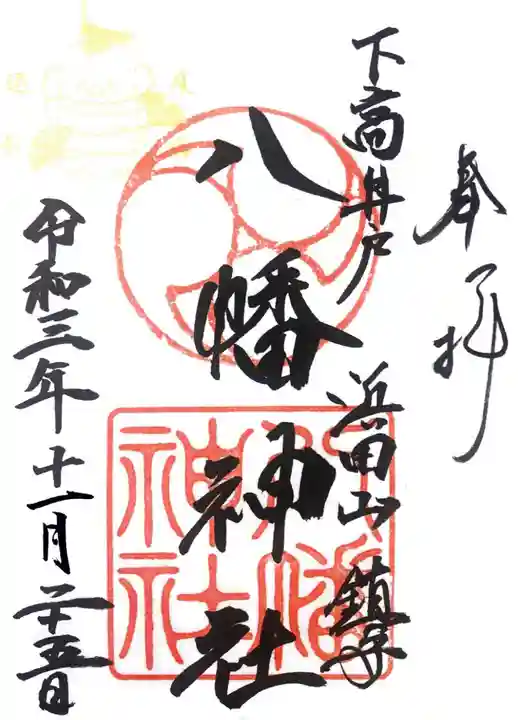 奉拝
下高井戸 近田山 鎮守
八幡神社
八幡神社
令和三年十一月二十五日